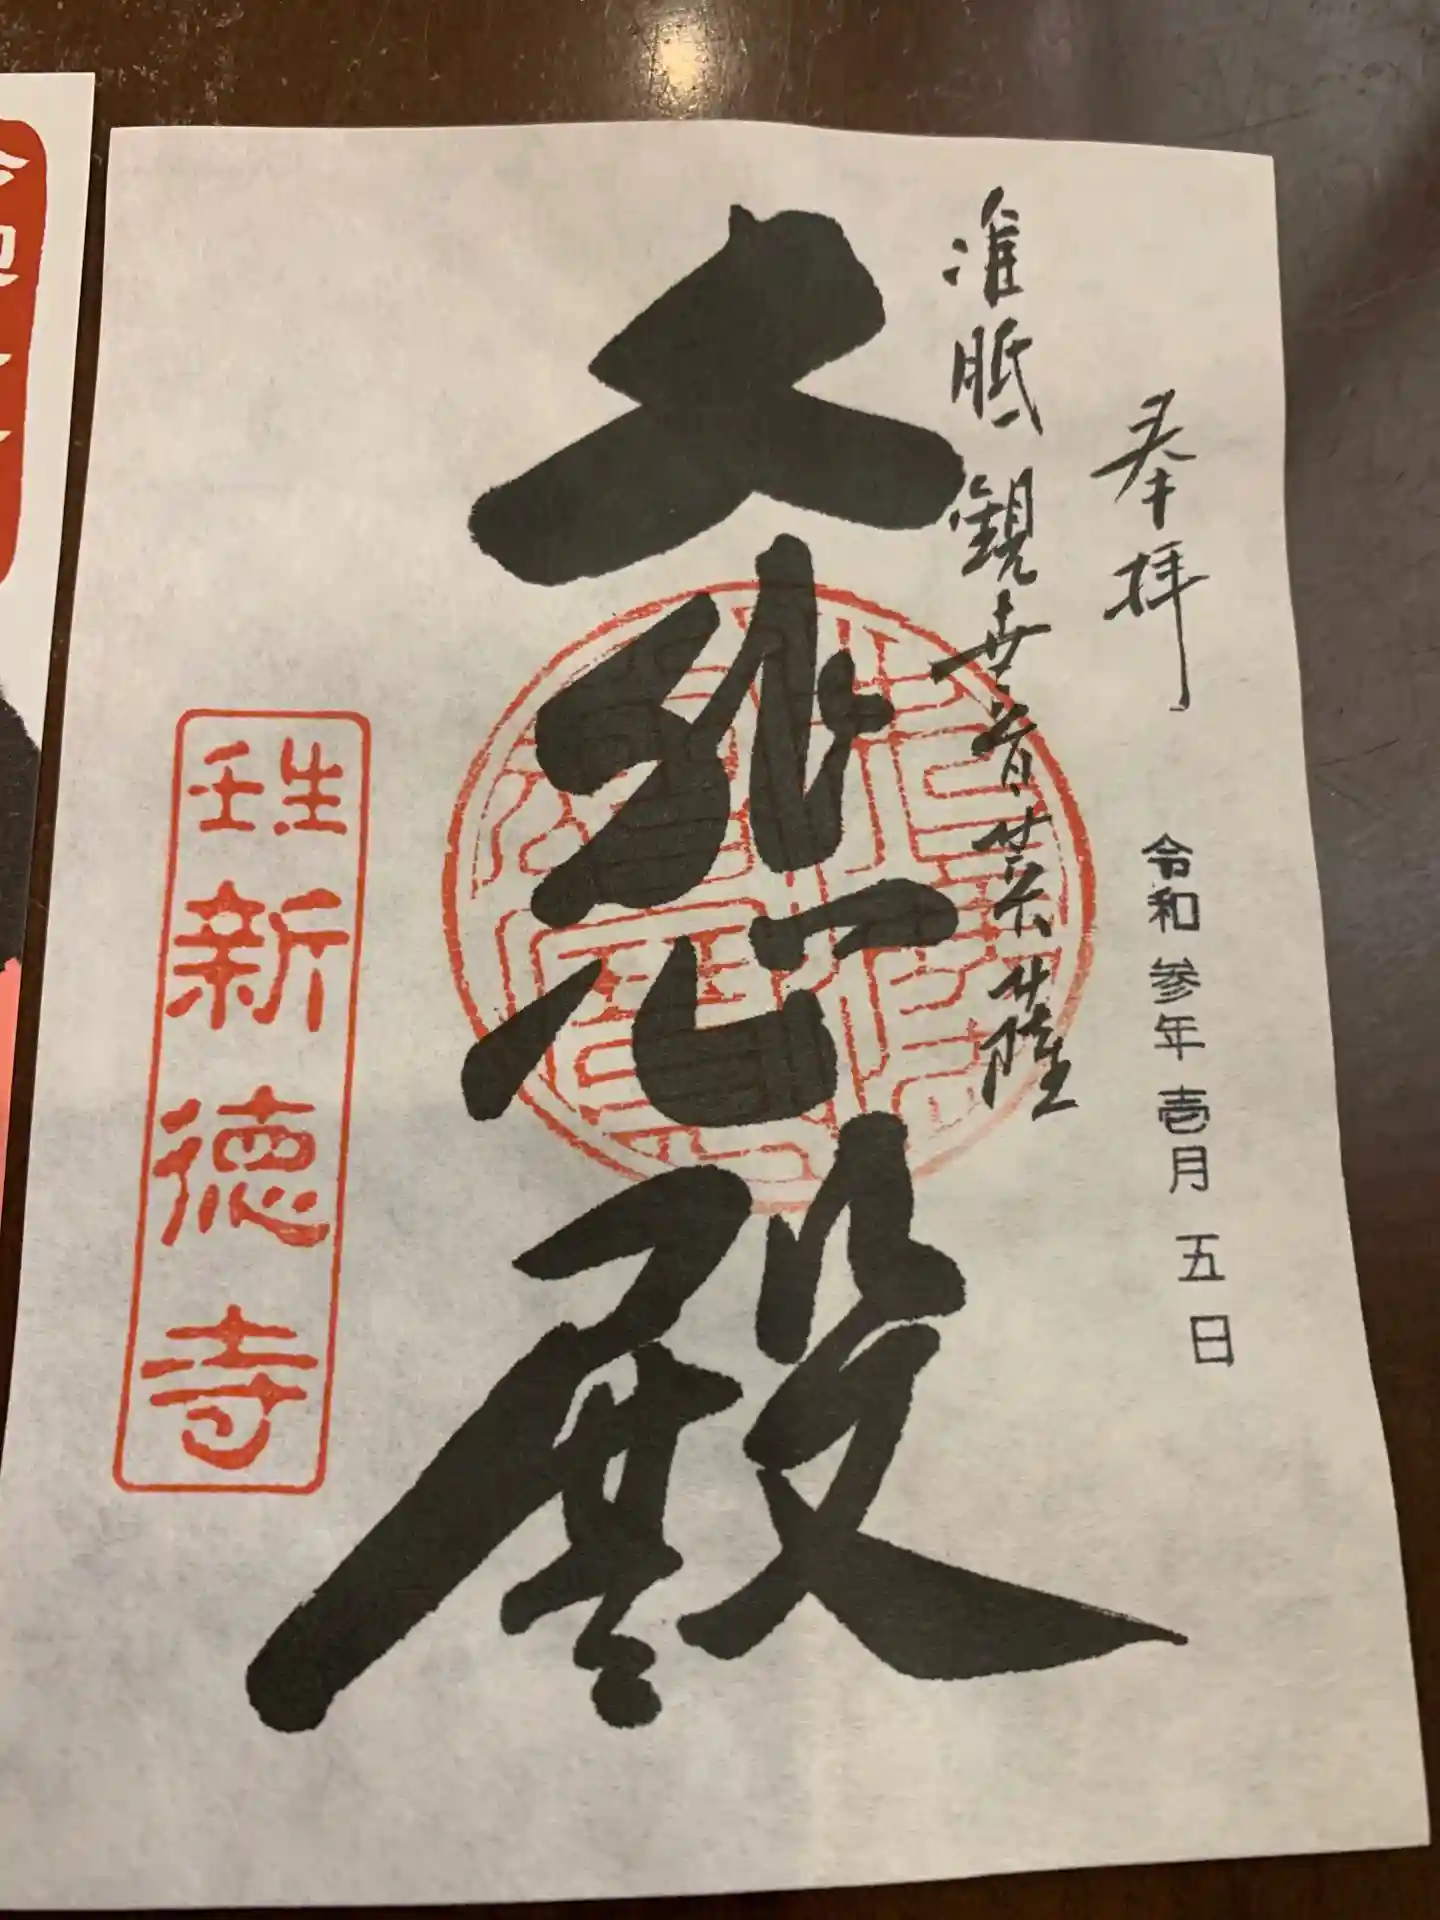 奉拝
令和参年壱月五日
准胝観世音菩薩
大悲殿
新徳寺